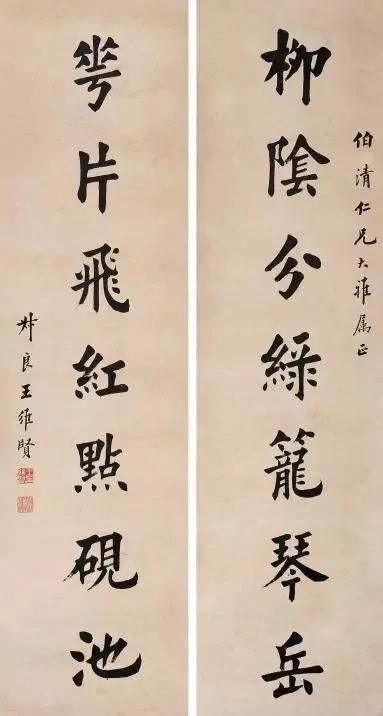 伯清仁兄大雅属正
柳陰分綠籠琴岳
花片飛紅點硯池
叔良王維賢